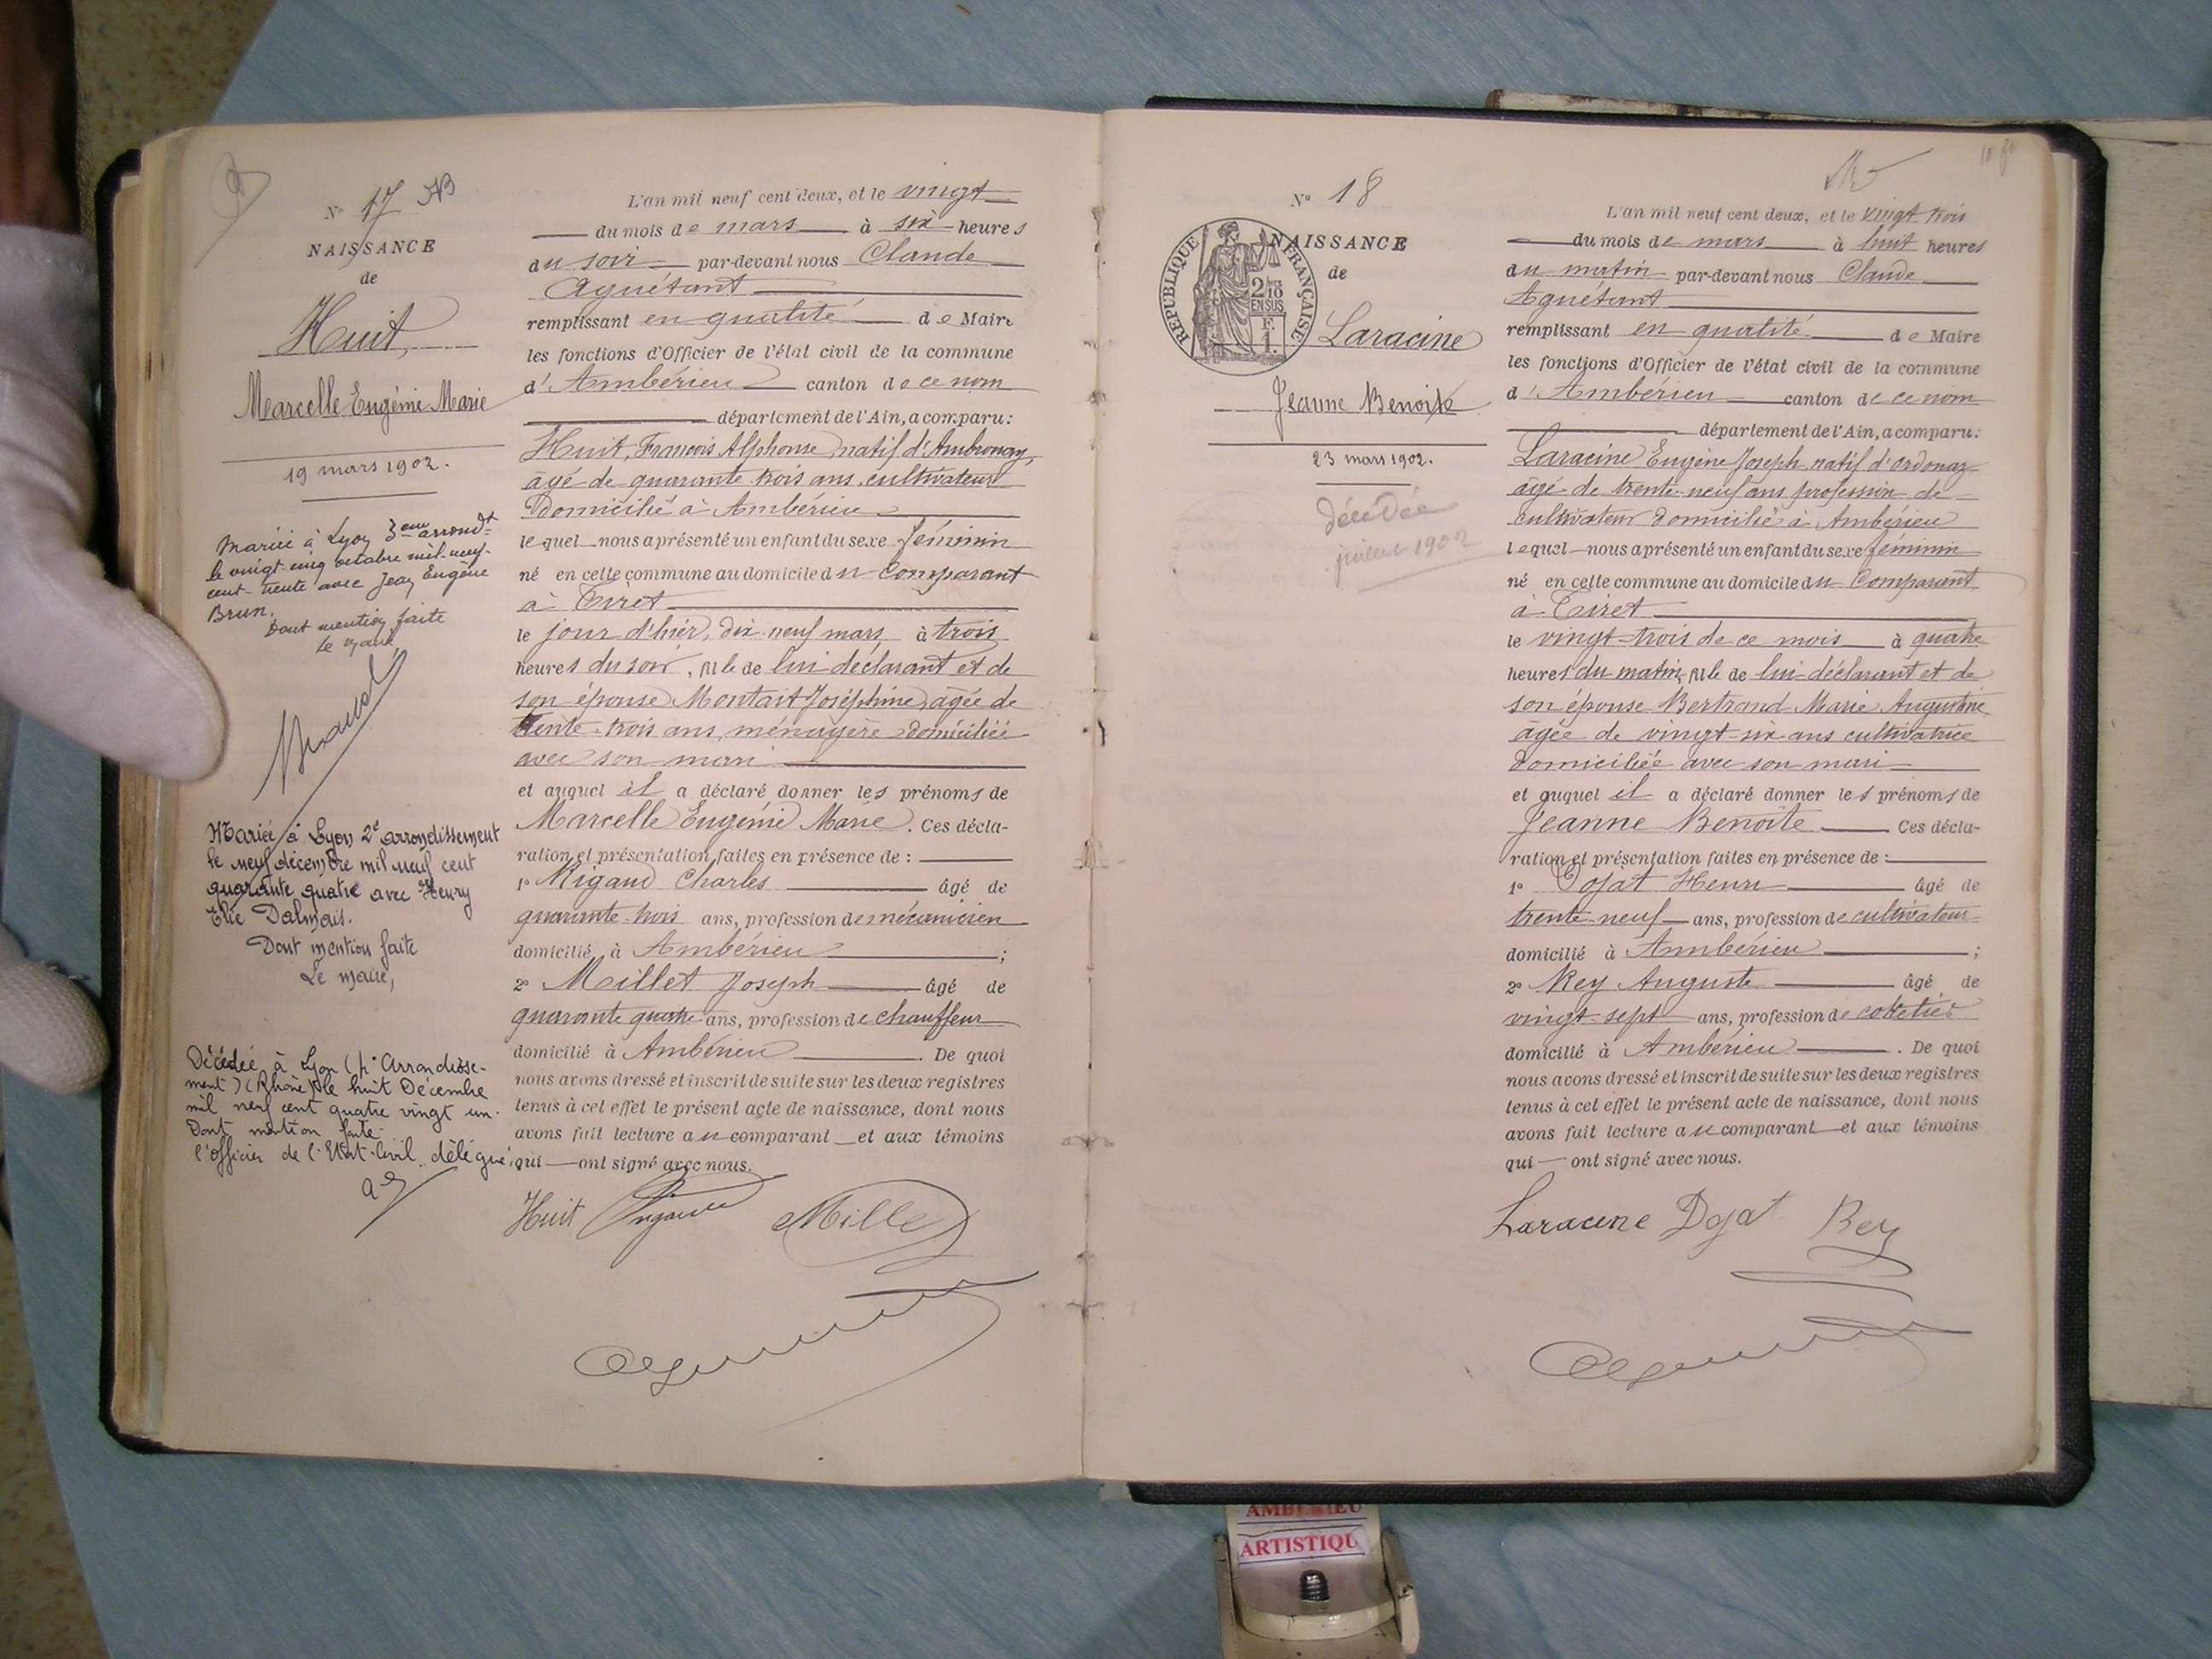 N° 17
NAISSANCE
de
Huit,
Marcelle Eugénie Marie
19 mars 1902.
Mariée à Lyon 3eme arrondt
le vingt-cinq octobre mil-neuf-
cent-trente avec Jean Eugène
Brun.
Dont mention faite
Le Maire,
Mariée à Lyon 2e arrondissement
le neuf décembre mil neuf cent
quarante quatre avec Henry
Elie Dalmais.
Dont mention faite
Le maire,
Décédée à Lyon (4e Arrondisse-
ment) (Rhône) le huit Décembre
mil neuf cent quatre vingt un.
Dont mention faite.
l'officier de l'Etat-Civil délégué,
L'an mil neuf cent deux, et le vingt
du mois de mars à six heures
du soir par-devant nous Claude
Aguétant
remplissant en qualité de Maire
les fonctions d'Officier de l'état civil de la commune
d'Ambérieu canton de ce nom
département de l'Ain, a comparu:
Huit, François Alphonse natif d'Ambronay,
âgé de quarante trois ans cultivateur
domicilié à Ambérieu
lequel nous a présenté un enfant du sexe féminin
né en cette commune au domicile du comparant
à Tiret
le jour d'hier, dix neuf mars à trois
heures du soir, fille de lui déclarant et de
son épouse Montait Joséphine âgée de
trente-trois ans, ménagère domiciliée
avec son mari
et auquel il a déclaré donner les prénoms de
Marcelle Eugénie Marie. Ces décla-
ration et présentation faites en présence de :
1° Rigaud Charles âgé de
quarante-trois ans, profession de mécanicien
domicilié à Ambérieu ;
2° Millet Joseph âgé de
quarante quatre ans, profession de chauffeur
domicilié à Ambérieu . De quoi
nous avons dressé et inscrit de suite sur les deux registres
tenus à cet effet le présent acte de naissance, dont nous
avons fait lecture au comparant et aux témoins
qui ont signé avec nous.
Huit Rigaud Millet
N° 18
NAISSANCE
de
RÉPUBLIQUE FRANÇAISE
2/10
EN SUS
Laracine
Jeanne Benoite
23 mars 1902.
décédée
juillet 1902
L'an mil neuf cent deux, et le vingt trois
du mois de mars à huit heures
du matin par-devant nous Claude
Aguétant
remplissant en qualité de Maire
les fonctions d'Officier de l'état civil de la commune
d'Ambérieu canton de ce nom
département de l'Ain, a comparu:
Laracine Eugène Joseph natif d'Ordonaz
âgé de trente-neuf ans profession de
cultivateur domicilié à Ambérieu
lequel nous a présenté un enfant du sexe féminin
né en cette commune au domicile du comparant
à Tiret
le vingt-trois de ce mois à quatre
heures du matin, fille de lui déclarant et de
son épouse Bertrand Marie Augustine
âgée de vingt-six ans cultivatrice
domiciliée avec son mari
et auquel il a déclaré donner les prénoms de
Jeanne Benoîte Ces décla-
ration et présentation faites en présence de :
1° Dojat Henri âgé de
trente-neuf ans, profession de cultivateur
domicilié à Ambérieu ;
2° Rey Auguste âgé de
vingt-sept ans, profession de
domicilié à Ambérieu . De quoi
nous avons dressé et inscrit de suite sur les deux registres
tenus à cet effet le présent acte de naissance, dont nous
avons fait lecture au comparant et aux témoins
qui ont signé avec nous.
Laracine Dojat Rey
AMBERIEU
ARTISTIQU